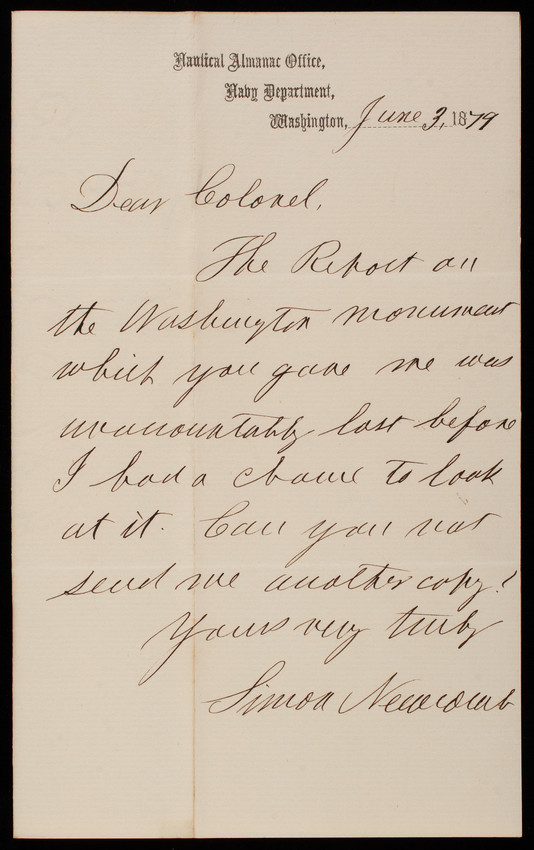 Nautical Almanac Office,
Navy Department,
Washington, June 3, 1879
Dear Colonel,
The Report on
the Washington monument
which you gave me was
unaccountably lost before
I had a chance to look
at it. Can you not
send me another copy?
Yours very truly
Simon Newcomb